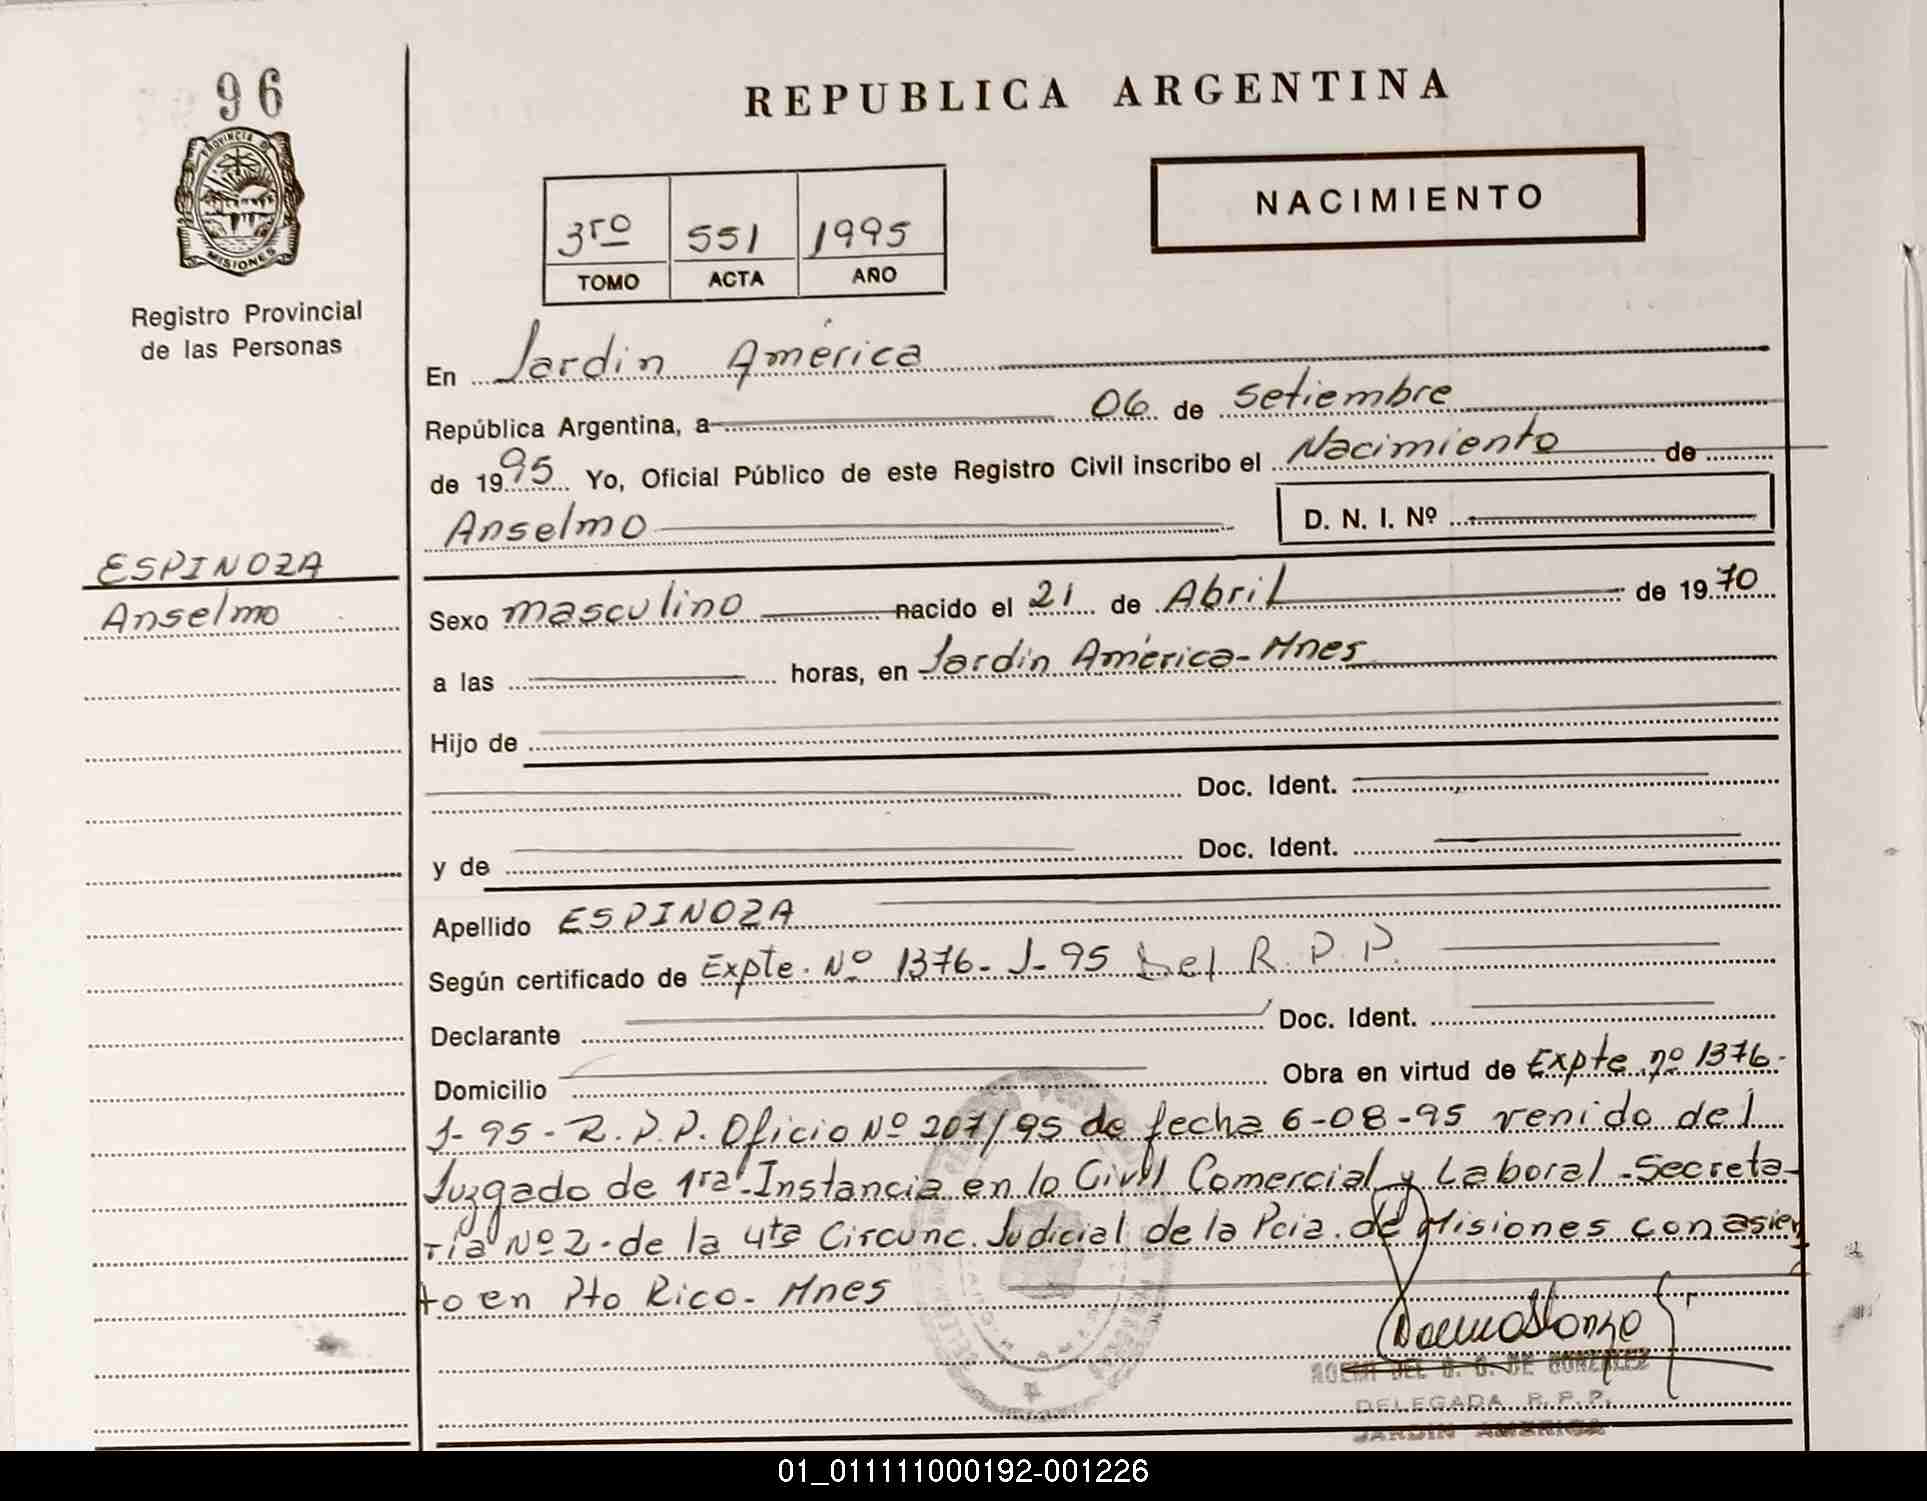 96
PROVINCIA DE
MISIONES
Registro Provincial
de las Personas
ESPINOZA
Anselmo
REPUBLICA ARGENTINA
3ro 551 1995
TOMO ACTA AÑO
NACIMIENTO
En Jardin América
República Argentina, a 06 de Setiembre
de 1995 Yo, Oficial Público de este Registro Civil inscribo el Nacimiento de
Anselmo D. N. I. Nº
Sexo masculino nacido el 21 de Abril de 1970
a las horas, en Jardin América - Mnes
Hijo de
Doc. Ident.
y de Doc. Ident.
Apellido ESPINOZA
Según certificado de Expte. Nº 1376- J- 95 Del R. P. P.
Declarante Doc. Ident.
Domicilio Obra en virtud de Expte nº 1376-
J- 95 - R. P. P. Oficio Nº 207/95 de fecha 6-08-95 venido del
Juzgado de 1ra Instancia en lo Civil Comercial y Laboral - Secreta-
ria Nº 2 - de la 4ta Circunc. Judicial de la Pcia. de Misiones con asien
to en Pto Rico - Mnes
NOEMI DEL DE GONZALEZ
DELEGADA R. P. P.
JARDIN AMERICA
01_011111000192-001226